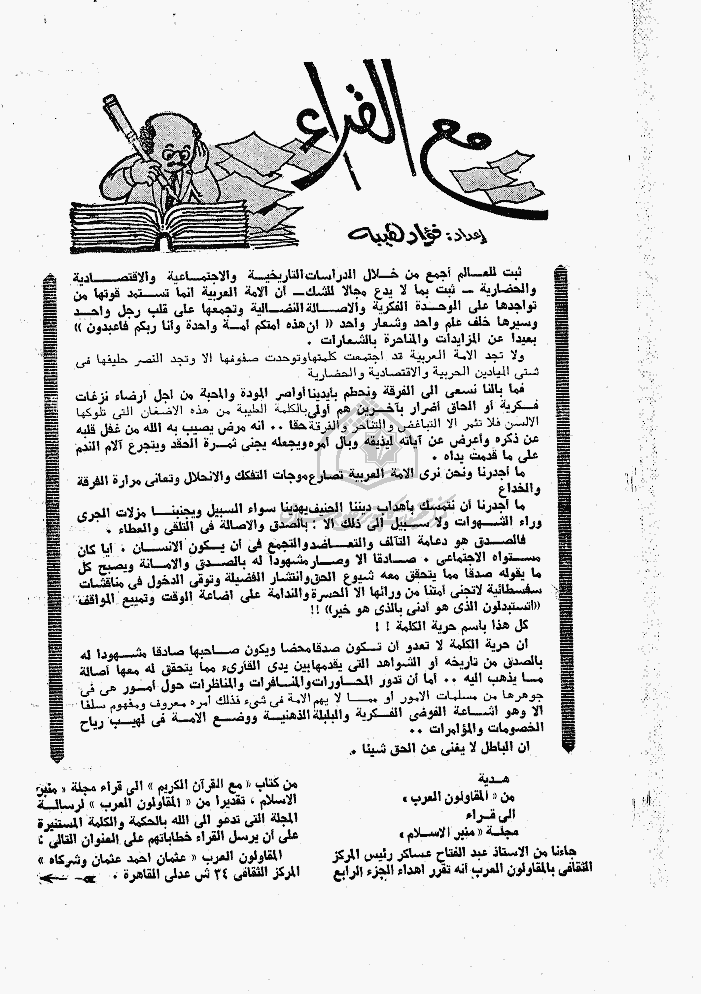 مع القراء
إعداد: فؤاد هيبه
ثبت للعالم أجمع من خلال الدراسات التاريخية والاجتماعية والاقتصادية
والحضارية — ثبت بما لا يدع مجالا للشك — أن الامة العربية انما تستمد قوتها من
تواجدها على الوحدة الفكرية والاصالة النضالية وتجمعها على قلب رجل واحد
وسيرها خلف علم واحد وشعار واحد « ان هذه امتكم امة واحدة وانا ربكم فاعبدون »
بعيدا عن المزايدات والمتاجرة بالشعارات .
ولا تجد الامة العربية قد اجتمعت كلمتها وتوحدت صفوفها الا وتجد النصر حليفها فى
شتى الميادين الحربية والاقتصادية والحضارية
فما بالنا نسعى الى الفرقة ونحطم بأيدينا أواصر المودة والمحبة من اجل ارضاء نزغات
فكرية أو الحاق أضرار بآخرين هم أولى بالكلمة الطيبة من هذه الاضغان التى تلوكها
الالسن فلا تثمر الا التباغض والتناحر والفرقة حقا .. انه مرض يصيب به الله من غفل قلبه
عن ذكره وأعرض عن آياته ليذيقه وبال أمره ويجعله يجنى ثمرة الحقد ويتجرع آلام الندم
على ما قدمت يداه .
ما أجدرنا ونحن نرى الامة العربية تصارع موجات التفكك والانحلال وتعانى مرارة الفرقة
والخداع
ما أجدرنا أن نتمسك بأهداب ديننا الحنيف يهدينا سواء السبيل ويجنبنا مزلات الجرى
وراء الشهوات ولا سبيل الى ذلك الا : بالصدق والاصالة فى التلقى والعطاء .
فالصدق هو دعامة التآلف والتعاضد والتجمع فى أن يكون الانسان ، أيا كان
مستواه الاجتماعى ، صادقا الا وصار مشهودا له بالصدق والامانة ويصبح كل
ما يقوله صدقا مما يتحقق معه شيوع الحق وانتشار الفضيلة وتوقى الدخول فى مناقشات
سفسطائية لاتجنى أمتنا من ورائها الا الحسرة والندامة على اضاعة الوقت وتمييع المواقف
«أتستبدلون الذى هو أدنى بالذى هو خير» !!
كل هذا باسم حرية الكلمة ! !
ان حرية الكلمة لا تعدو أن تكون صدقا محضا ويكون صاحبها صادقا مشهودا له
بالصدق من تاريخه أو الشواهد التى يقدمها بين يدى القارىء مما يتحقق له معها أصالة
ما يذهب اليه .. أما أن تدور المحاورات والمنافرات والمناظرات حول أمور هى فى
جوهرها من مسلمات الامور أو مما لا يهم الامة فى شىء فذلك أمره معروف ومفهوم سلفا
الا وهو اشاعة الفوضى الفكرية والبلبلة الذهنية ووضع الامة فى لهيب رياح
الخصومات والمؤامرات ..
ان الباطل لا يغنى عن الحق شيئا .
هدية
من « المقاولون العرب »
الى قراء
مجلة « منبر الاسلام »
جاءنا من الاستاذ عبد الفتاح عساكر رئيس المركز
الثقافى بالمقاولون العرب أنه تقرر اهداء الجزء الرابع
من كتاب « مع القرآن الكريم » الى قراء مجلة « منبر
الاسلام ، تقديرا من « المقاولون العرب » لرسالة
المجلة التى تدعو الى الله بالحكمة والكلمة المستنيرة
على أن يرسل القراء خطاباتهم على العنوان التالى :
المقاولون العرب « عثمان احمد عثمان وشركاه »
المركز الثقافى ٣٤ ش عدلى القاهرة .